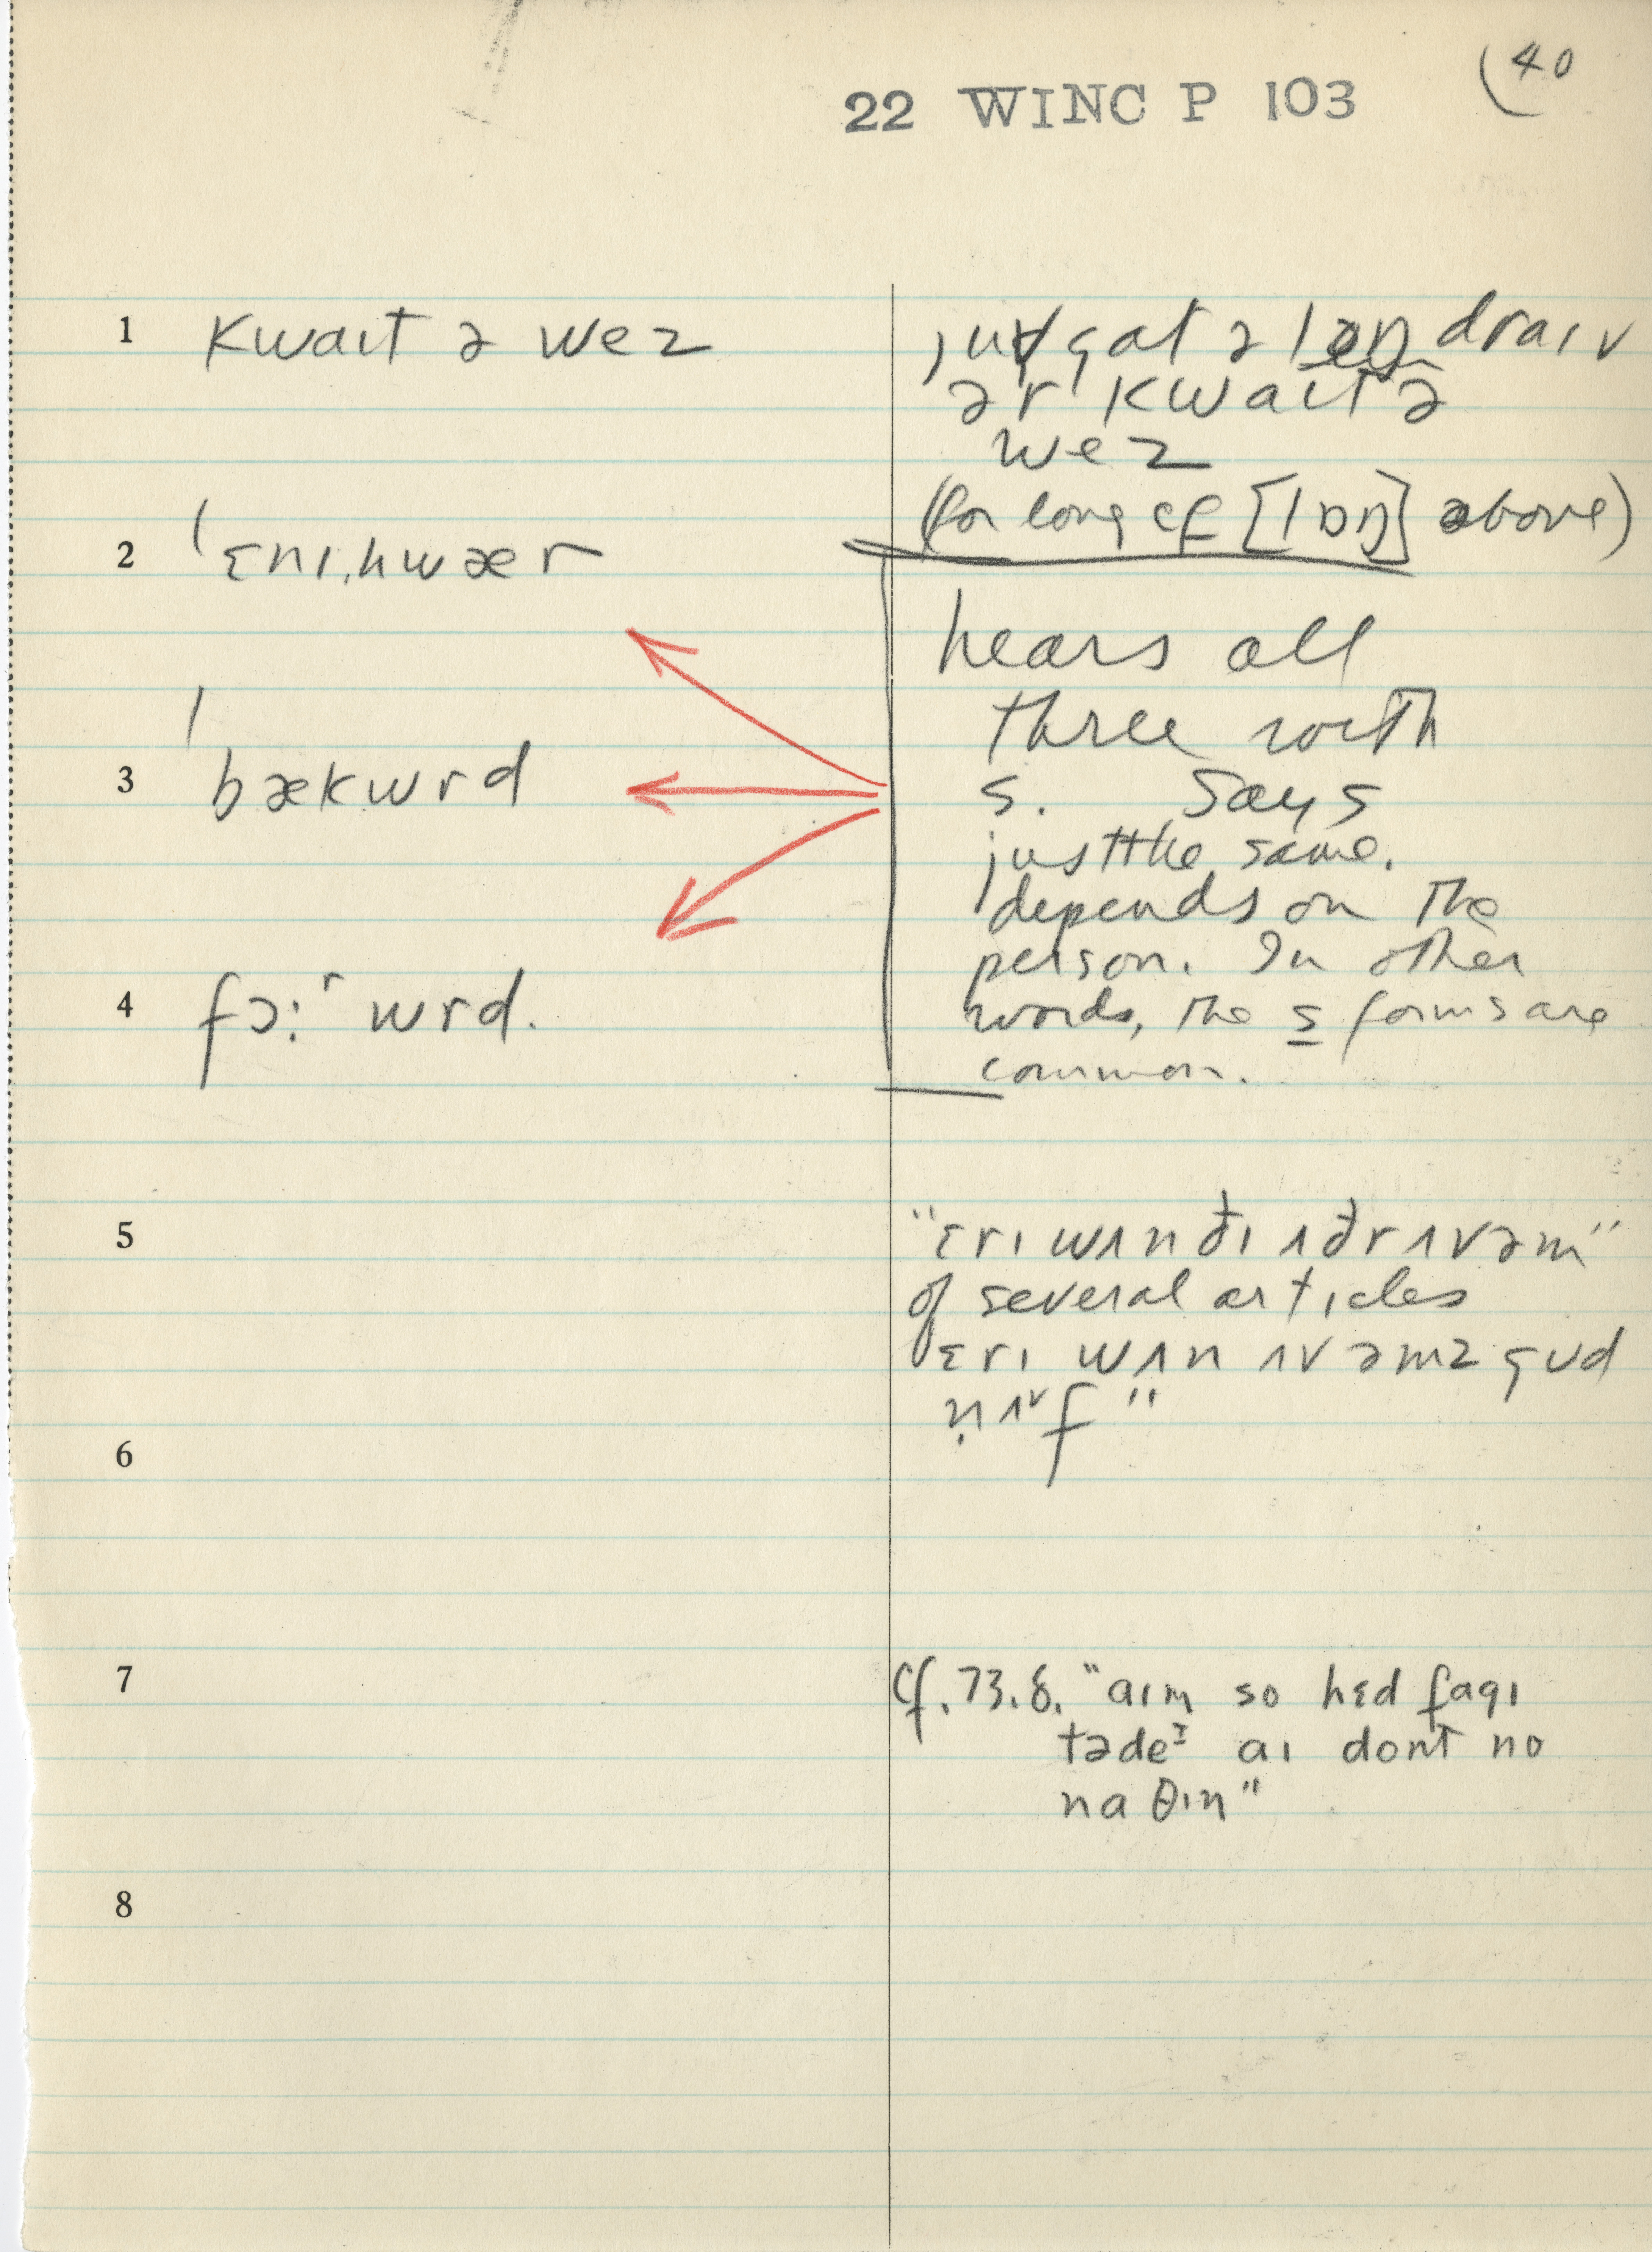 40
22 WINC P 103
1 kwaɪt ə wez
ju gat ə lɒŋ draɪv
ər kwaɪt ə
wez
(for long cf [lɒŋ] above)
2 ˈɛnɪˌhwær
hears all
three with
s. Says
3 ˈbækwrd
just the same.
depends on the
person. In other
4 fɔːʳwrd.
words, the s forms are
common.
5 "ɛrɪ wʌn ðɪ ʌðr ʌv əm"
of several articles
ɛrɪ wʌn ʌv əmz gʊd
n̩ʌᵛf"
6
7 Cf. 73.8. "aɪm so hɛd fagɪ
tədeᴵ aɪ dont no
naθɪn"
8